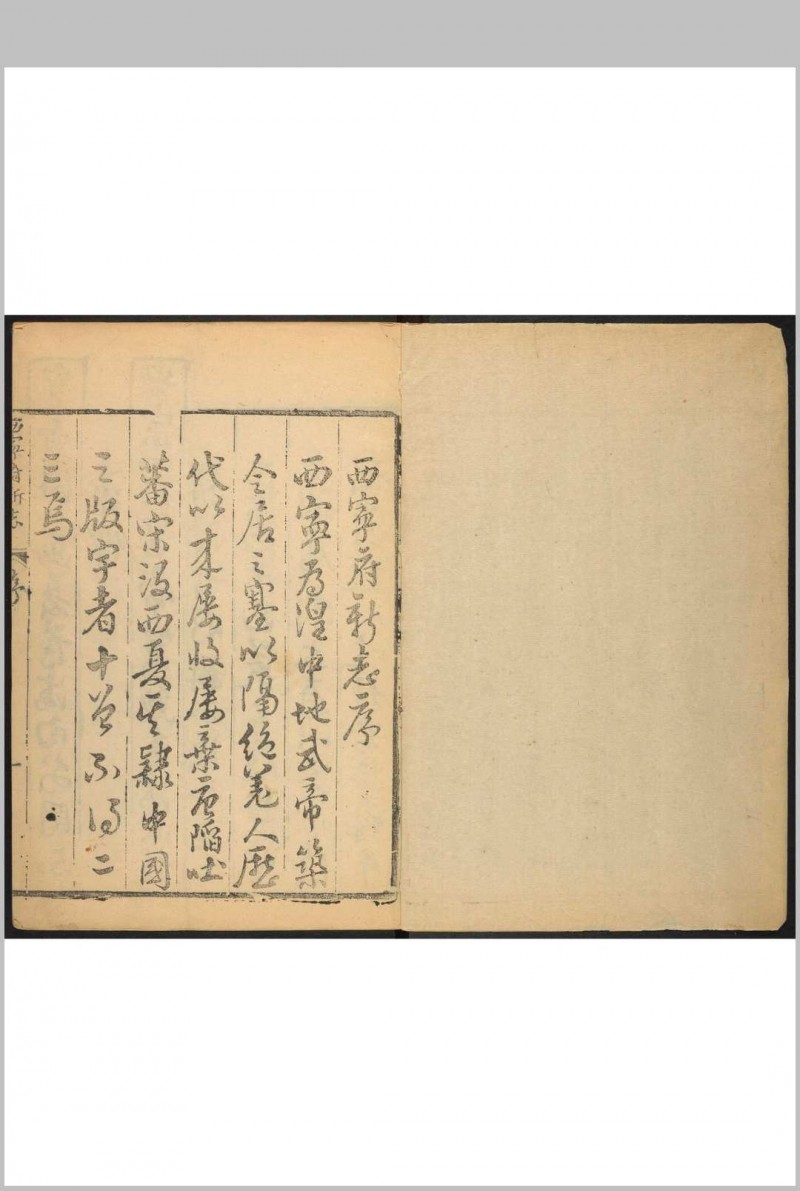 西寧府新志序
西寧為湟中地武帝築
令居之塞以隔絶羌人歷
代以來屢收屢棄唐陷吐
蕃宋沒西夏其隸中國
之版宇者十曾不得二
三焉
西寧府新志
序
一